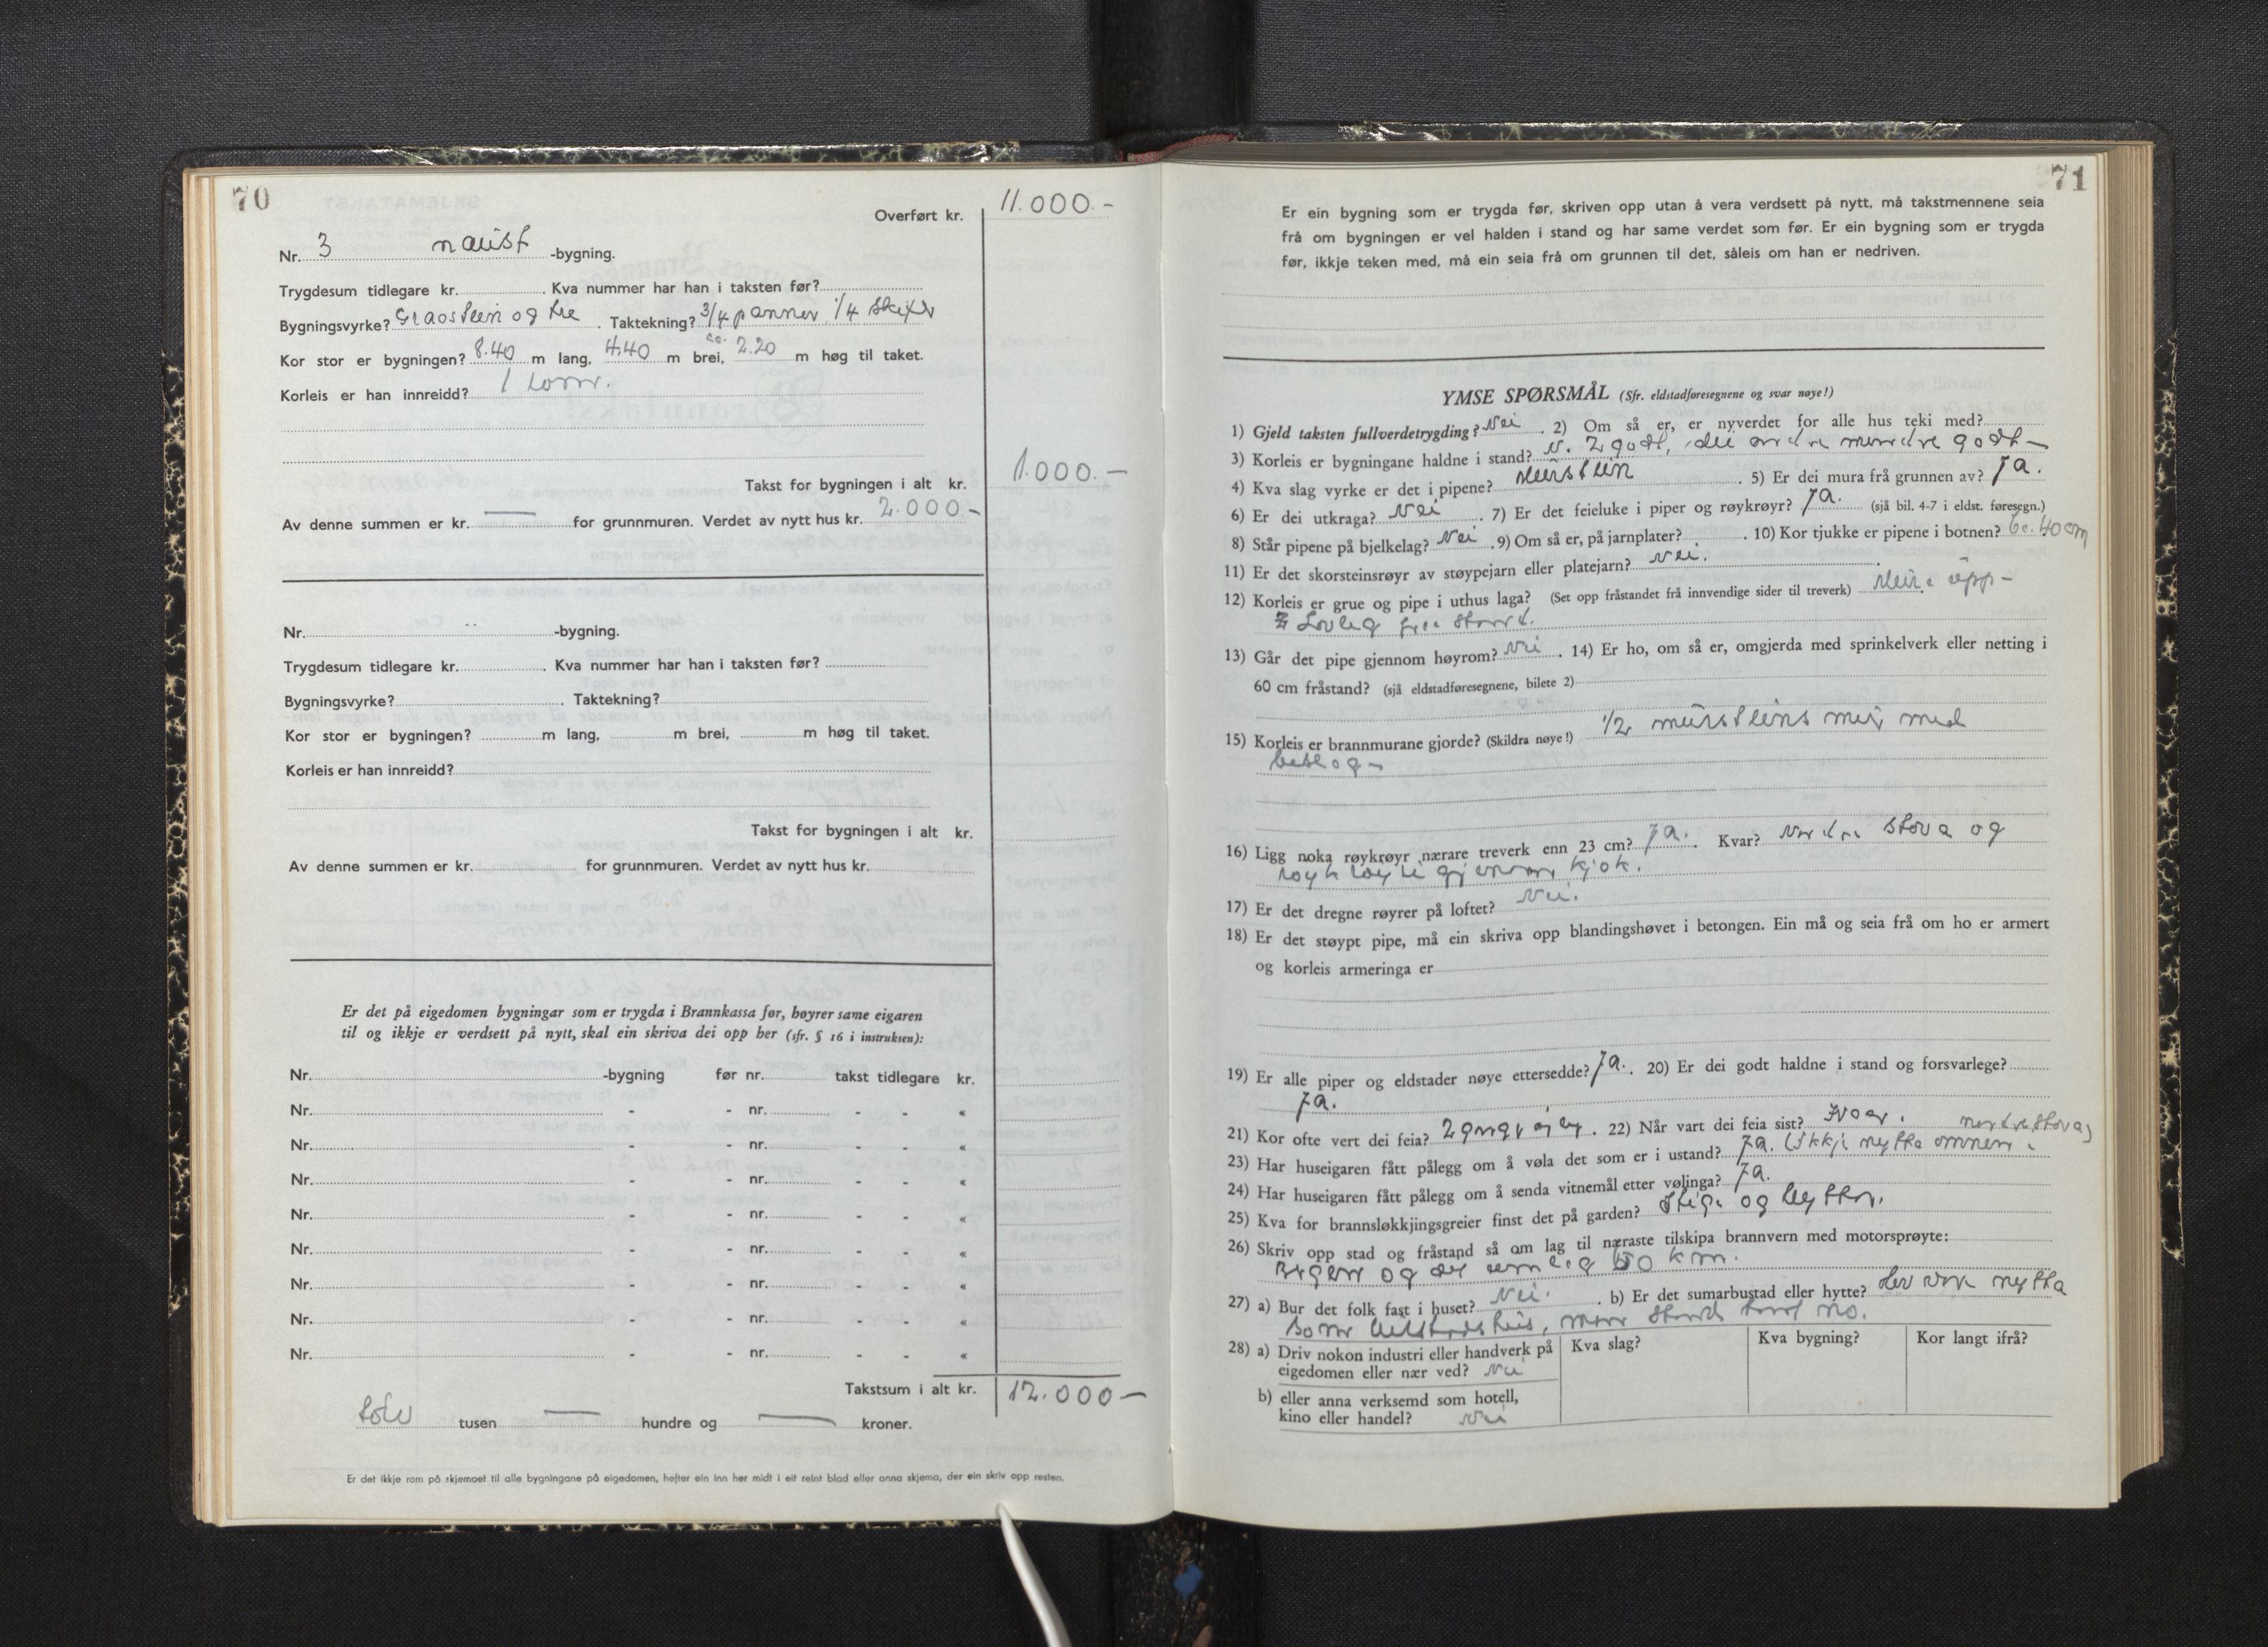 70
Overført kr. 11.000.-
Nr. 3 naust -bygning.
Trygdesum tidlegare kr. . Kva nummer har han i taksten før?
Bygningsvyrke? Graostein og tre . Taktekning? 3/4 panner 1/4 skifer
Kor stor er bygningen? 8.40 m lang, 4.40 m brei, ca. 2.20 m høg til taket.
Korleis er han innreidd? 1 rom.
Takst for bygningen i alt kr. 1.000.-
Av denne summen er kr. — for grunnmuren. Verdet av nytt hus kr. 2.000.-
Nr. -bygning.
Trygdesum tidlegare kr. . Kva nummer har han i taksten før?
Bygningsvyrke? . Taktekning?
Kor stor er bygningen? m lang, m brei, m høg til taket.
Korleis er han innreidd?
Takst for bygningen i alt kr.
Av denne summen er kr. for grunnmuren. Verdet av nytt hus kr.
Er det på eigedomen bygningar som er trygda i Brannkassa før, høyrer same eigaren
til og ikkje er verdsett på nytt, skal ein skriva dei opp her (sfr. § 16 i instruksen):
Nr. -bygning før nr. takst tidlegare kr.
Nr. - - nr. - - «
Nr. - - nr. - - «
Nr. - - nr. - - «
Nr. - - nr. - - «
Nr. - - nr. - - «
Nr. - - nr. - - «
Nr. - - nr. - - «
Nr. - - nr. - - «
Takstsum i alt kr. 12.000-
tolv tusen — hundre og — kroner.
Er det ikkje rom på skjemaet til alle bygningane på eigedomen, hefter ein inn her midt i eit reint blad eller anna skjema, der ein skriv opp resten.
71
Er ein bygning som er trygda før, skriven opp utan å vera verdsett på nytt, må takstmennene seia
frå om bygningen er vel halden i stand og har same verdet som før. Er ein bygning som er trygda
før, ikkje teken med, må ein seia frå om grunnen til det, såleis om han er nedriven.
YMSE SPØRSMÅL (Sfr. eldstadføresegnene og svar nøye!)
1) Gjeld taksten fullverdetrygding? Nei . 2) Om så er, er nyverdet for alle hus teki med?
3) Korleis er bygningane haldne i stand? N. 2 godt, dei andre mindre godt-
4) Kva slag vyrke er det i pipene? Murstein . 5) Er dei mura frå grunnen av? Ja.
6) Er dei utkraga? Nei . 7) Er det feieluke i piper og røykrøyr? Ja. (sjå bil. 4-7 i eldst. føresegn.)
8) Står pipene på bjelkelag? Nei . 9) Om så er, på jarnplater? . 10) Kor tjukke er pipene i botnen? ca. 40 cm
11) Er det skorsteinsrøyr av støypejarn eller platejarn? Nei.
12) Korleis er grue og pipe i uthus laga? (Set opp fråstandet frå innvendige sider til treverk) Mura opp-
i Lovleg frå stand.
13) Går det pipe gjennom høyrom? Nei . 14) Er ho, om så er, omgjerda med sprinkelverk eller netting i
60 cm fråstand? (sjå eldstadføresegnene, bilete 2)
15) Korleis er brannmurane gjorde? (Skildra nøye!) 1/2 mursteins mur med
beslag-
16) Ligg noka røykrøyr nærare treverk enn 23 cm? Ja. Kvar? Nordre stova og
røyk røyre gjenom kjøk.
17) Er det dregne røyrer på loftet? Nei.
18) Er det støypt pipe, må ein skriva opp blandingshøvet i betongen. Ein må og seia frå om ho er armert
og korleis armeringa er
19) Er alle piper og eldstader nøye ettersedde? Ja. . 20) Er dei godt haldne i stand og forsvarlege?
Ja.
21) Kor ofte vert dei feia? 2 gngr aj. . 22) Når vart dei feia sist? I vaar. nordre stova)
23) Har huseigaren fått pålegg om å vøla det som er i ustand? Ja. (Ikkje nytta omnen i
24) Har huseigaren fått pålegg om å senda vitnemål etter vølinga? Ja.
25) Kva for brannsløkkjingsgreier finst det på garden? Stige og bytter.
26) Skriv opp stad og fråstand så om lag til næraste tilskipa brannvern med motorsprøyte:
Bergen og der umleg 50 km.
27) a) Bur det folk fast i huset? Nei. . b) Er det sumarbustad eller hytte? Hev vore nytta
som hus, men stend tomt no.
28) a) Driv nokon industri eller handverk på
eigedomen eller nær ved? Nei
Kva slag? Kva bygning? Kor langt ifrå?
b) eller anna verksemd som hotell,
kino eller handel? Nei